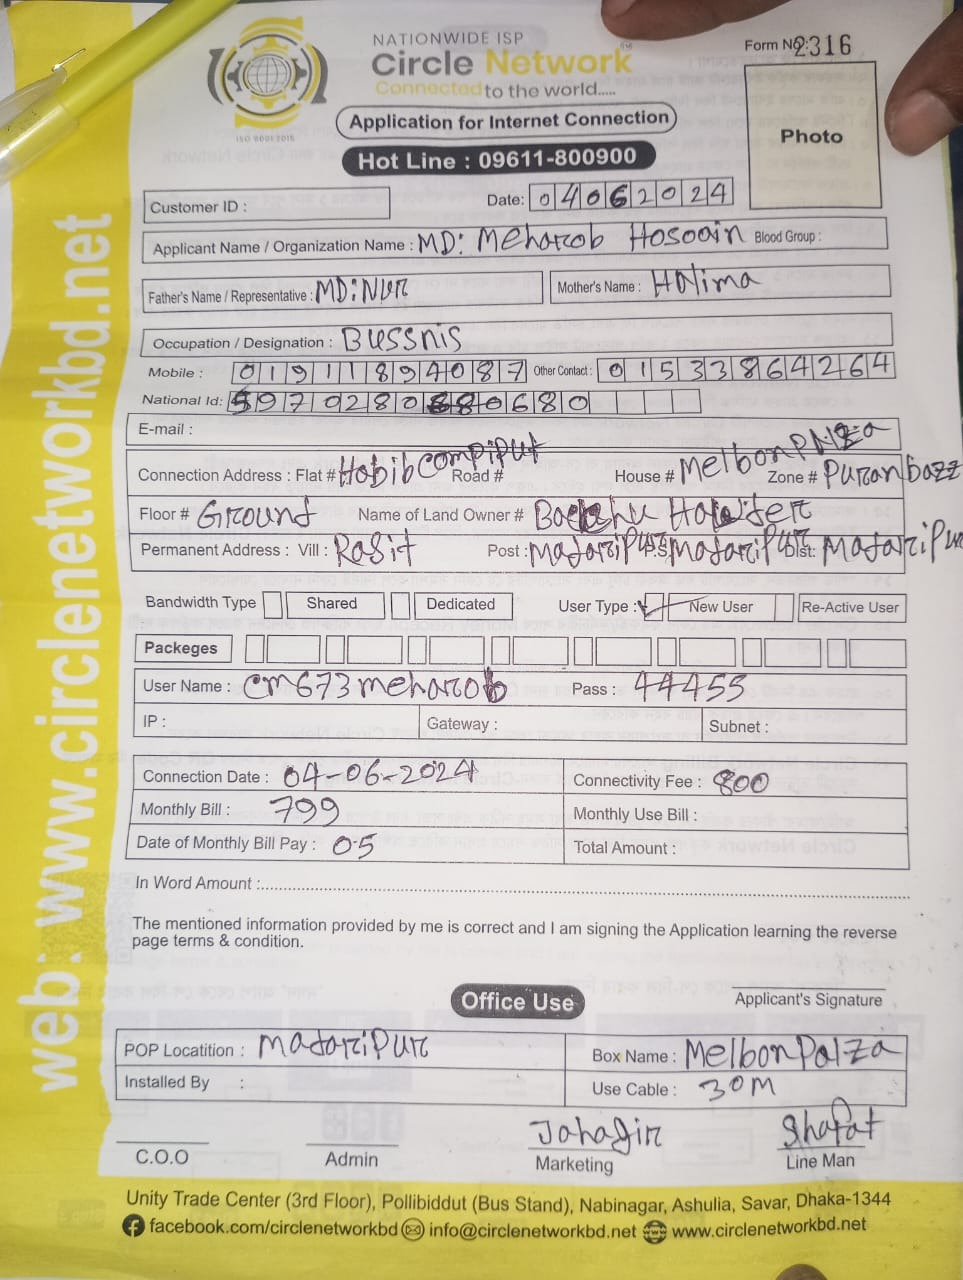 NATIONWIDE ISP
Circle Network
Connected to the world.....
ISO 9001:2015
Form No 2316
Application for Internet Connection
Hot Line : 09611-800900
Photo
Customer ID :
Date: 04062024
Applicant Name / Organization Name : MD: Meharob Hosoain Blood Group :
Father's Name / Representative : MD: NUR
Mother's Name : Halima
Occupation / Designation : Bussnis
Mobile : 01911894087 Other Contact : 01533864264
National Id:
E-mail :
Connection Address : Flat # Habib compiput Road # House # Melbon Zone # Puranbazz
Floor # Ground Name of Land Owner #
Permanent Address : Vill : Rasit Post : Madaripur P.S: Madaripur Dist: Madaripur
Bandwidth Type Shared Dedicated User Type : New User Re-Active User
Packeges
User Name : cm673meharob Pass : 44455
IP : Gateway : Subnet :
Connection Date : 04-06-2024 Connectivity Fee : 800
Monthly Bill : 799 Monthly Use Bill :
Date of Monthly Bill Pay : 05 Total Amount :
In Word Amount :
The mentioned information provided by me is correct and I am signing the Application learning the reverse
page terms & condition.
Applicant's Signature
Office Use
POP Locatition : Madaripur Box Name : Melbon Palza
Installed By : Use Cable : 30M
Jahagir Shafat
C.O.O Admin Marketing Line Man
Unity Trade Center (3rd Floor), Pollibiddut (Bus Stand), Nabinagar, Ashulia, Savar, Dhaka-1344
facebook.com/circlenetworkbd info@circlenetworkbd.net www.circlenetworkbd.net
web: www.circlenetworkbd.net